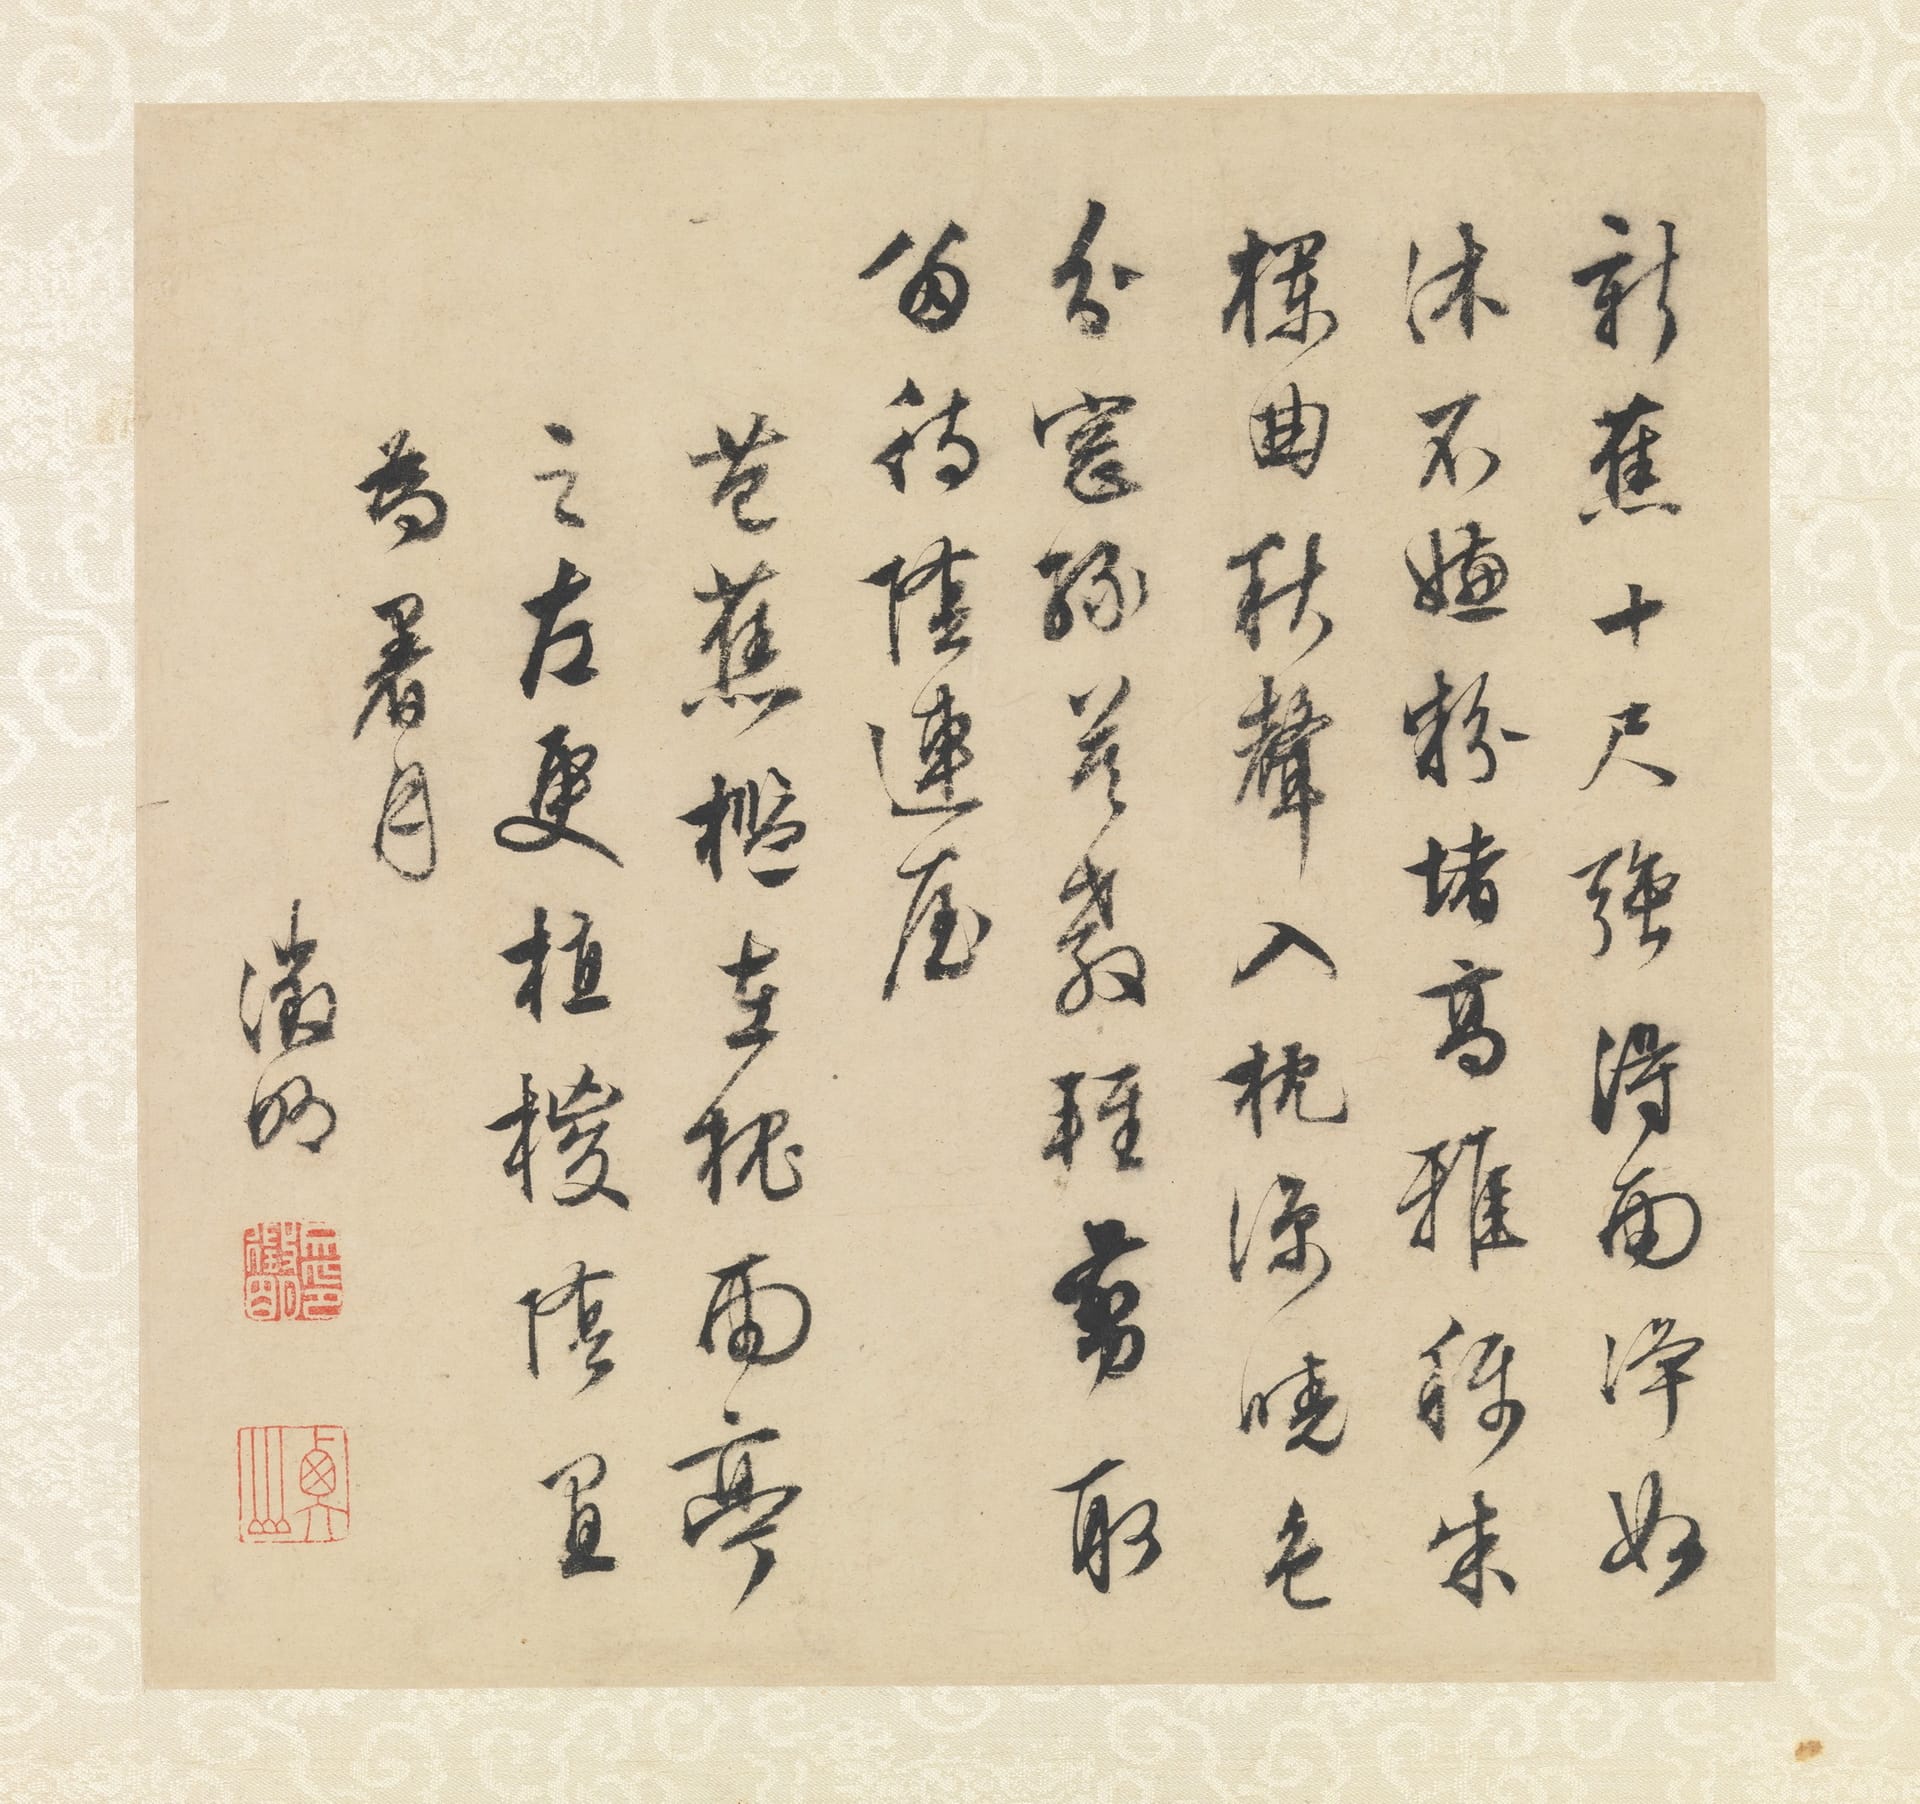 新蕉十尺強得雨淨如
沐不嫌粉堵高雅稱朱
欄曲秋聲入枕涼曉色
分窓綠莫教輕剪取
留待陰連屋
芭蕉檻在槐雨亭
之左更植椶陰宜
為暑月
徵明